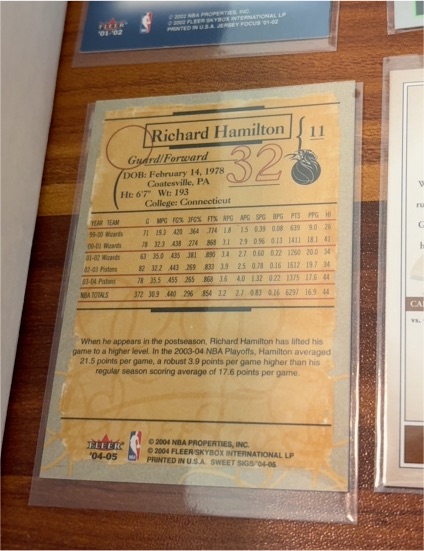 FLEER
'01-'02
© 2002 NBA PROPERTIES, INC.
© 2002 FLEER/SKYBOX INTERNATIONAL LP
PRINTED IN U.S.A. JERSEY FOCUS '01-'02
Richard Hamilton
11
Guard/Forward
32
DOB: February 14, 1978
Coatesville, PA
Ht: 6'7" Wt: 193
College: Connecticut
YEAR TEAM G MPG FG% 3FG% FT% RPG APG SPG BPG PTS PPG HI
99-00 Wizards 71 19.3 .420 .364 .774 1.8 1.5 0.39 0.08 639 9.0 26
00-01 Wizards 78 32.3 .438 .274 .868 3.1 2.9 0.96 0.13 1411 18.1 41
01-02 Wizards 63 35.0 .435 .381 .890 3.4 2.7 0.60 0.22 1260 20.0 34
02-03 Pistons 82 32.2 .443 .269 .833 3.9 2.5 0.78 0.16 1612 19.7 34
03-04 Pistons 78 35.5 .455 .265 .868 3.6 4.0 1.32 0.22 1375 17.6 44
NBA TOTALS 372 30.9 .440 .296 .854 3.2 2.7 0.83 0.16 6297 16.9 44
When he appears in the postseason, Richard Hamilton has lifted his
game to a higher level. In the 2003-04 NBA Playoffs, Hamilton averaged
21.5 points per game, a robust 3.9 points per game higher than his
regular season scoring average of 17.6 points per game.
FLEER
'04-05
© 2004 NBA PROPERTIES, INC.
© 2004 FLEER/SKYBOX INTERNATIONAL LP
PRINTED IN U.S.A. SWEET SIGS '04-05